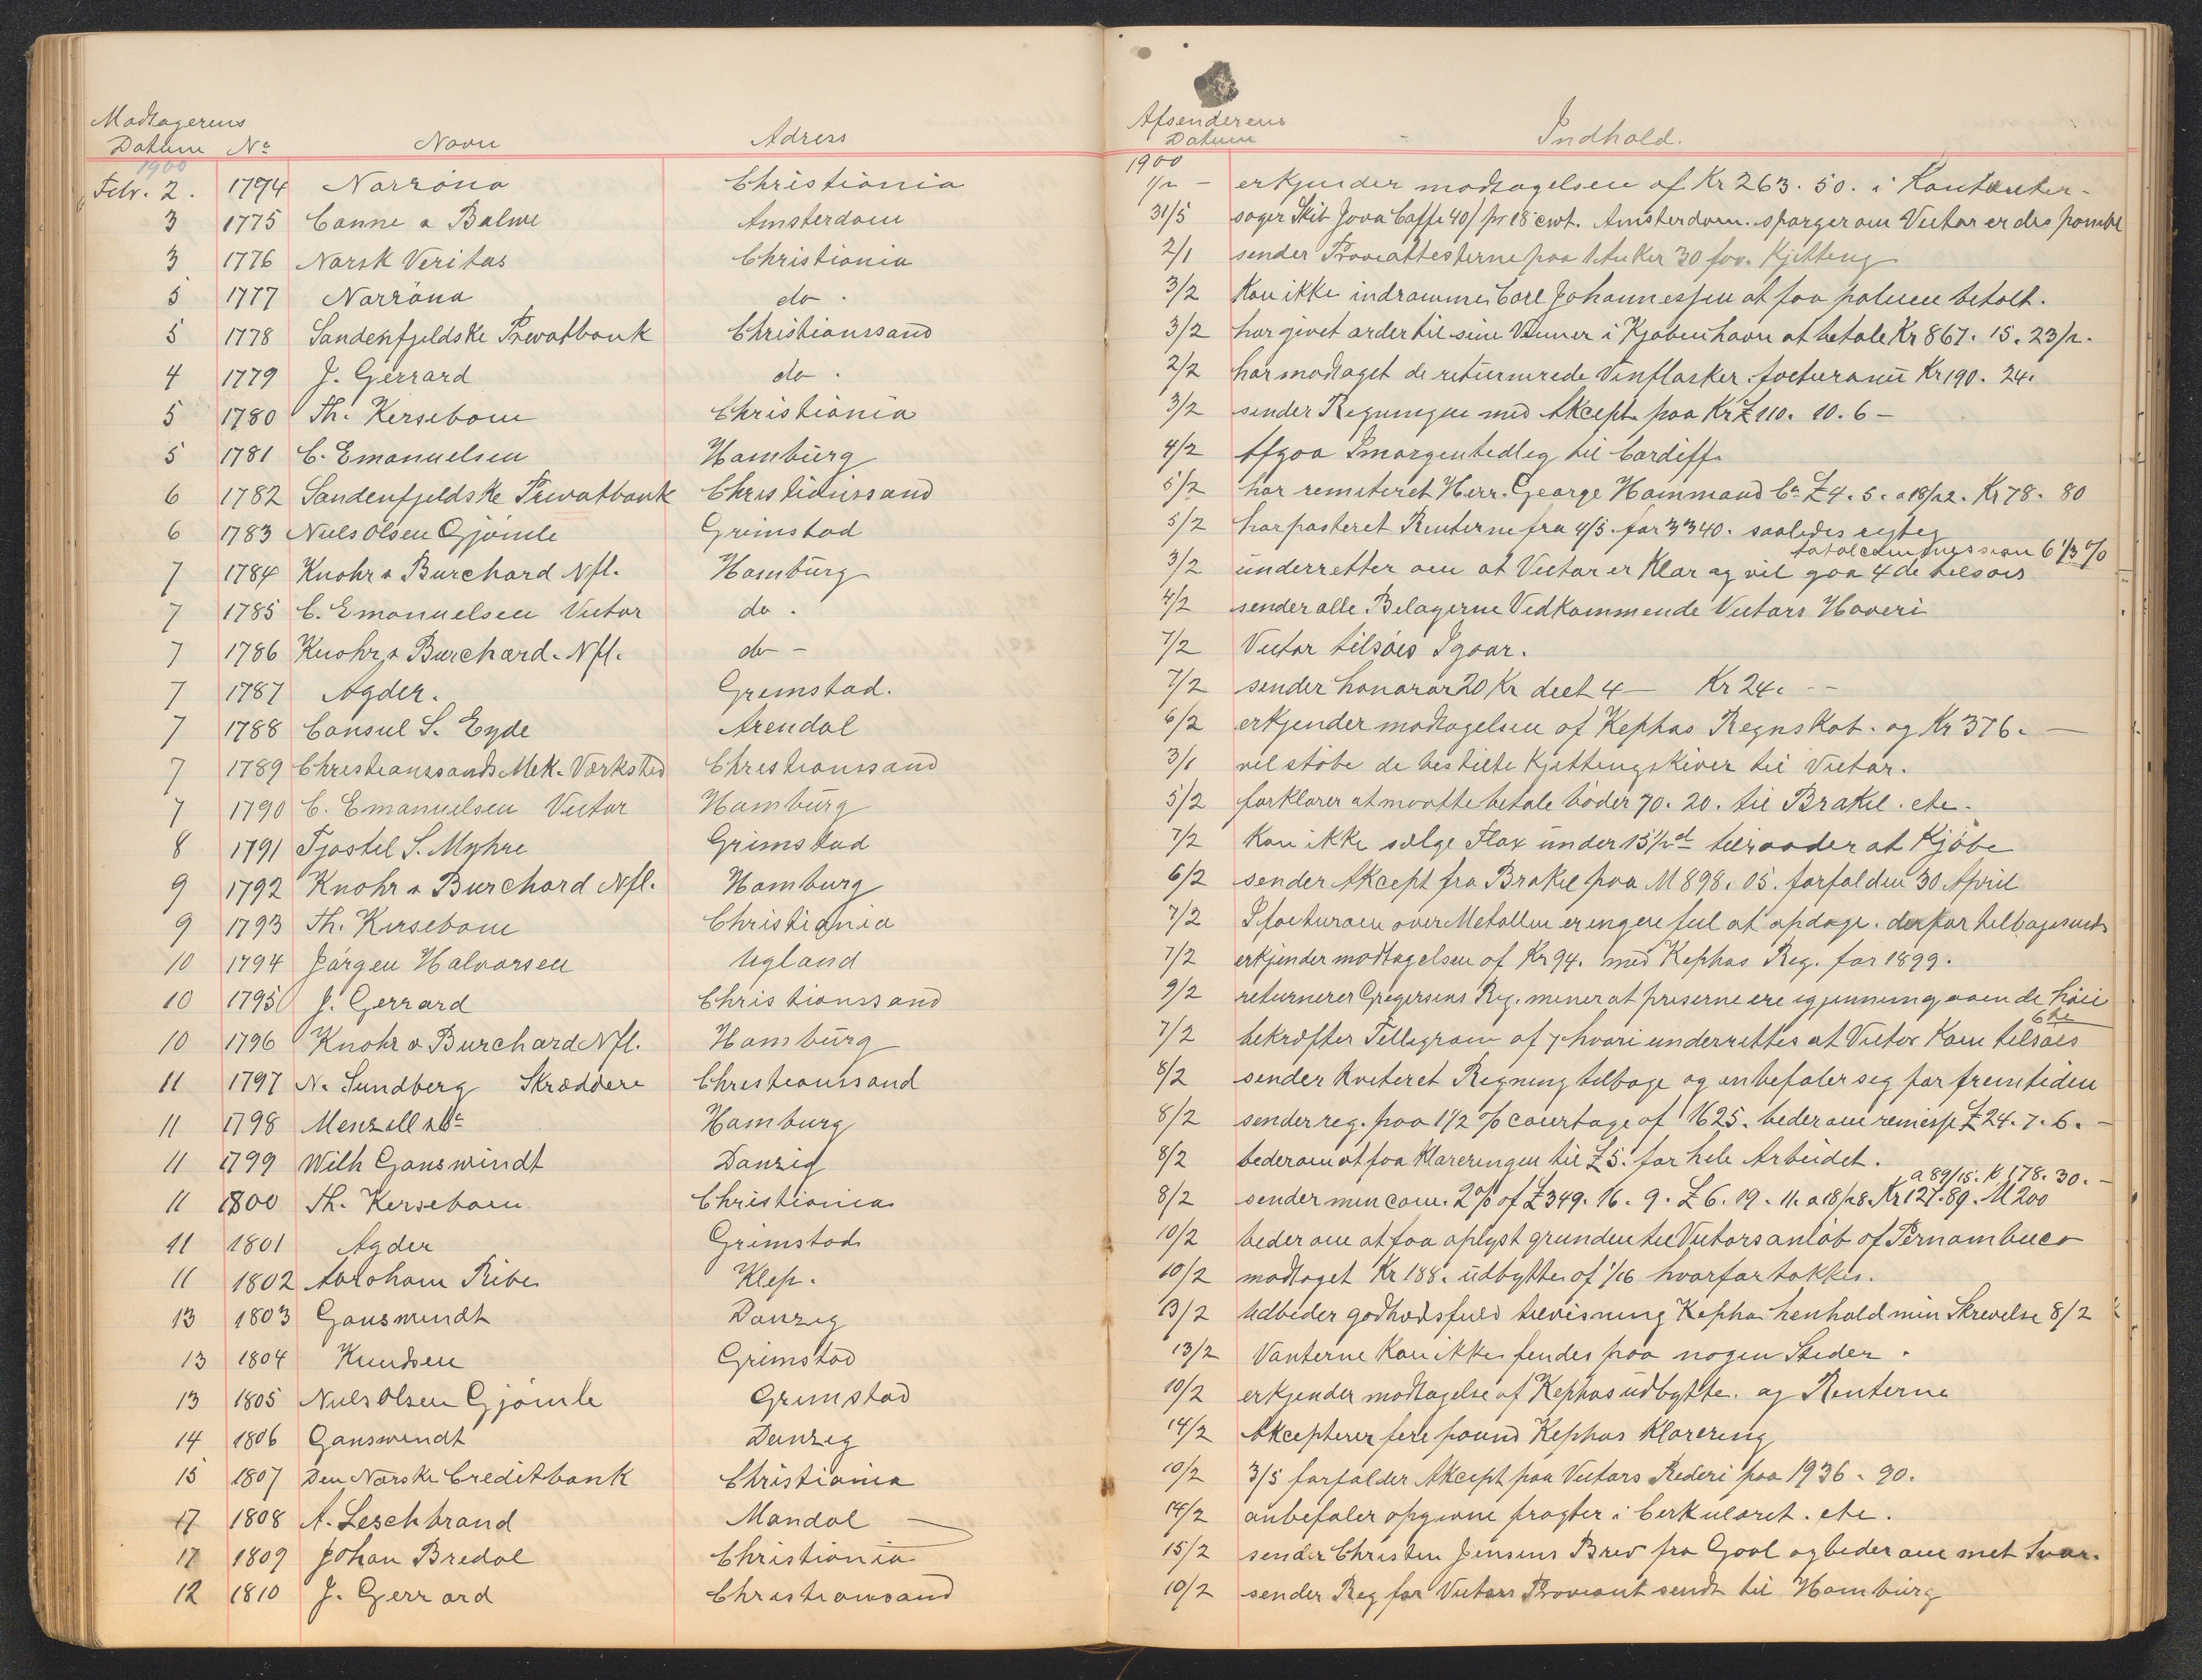 Modtagerens
Datum No Navn Adress
Afsenderens
Datum Indhold.
1900
1900
Febr. 2. 1794 Norröna Christiania 1/2 - erkjender modtagelsen af Kr 263. 50. i Kontanter-
3 1775 Canne & Balwe Amsterdam 31/5 søger Skib Java Caffe 40/ pr 18 cwt. Amsterdam. spørger om Victor er
3 1776 Norsk Veritas Christiania 2/1 sender Prøveattesterne paa 1 Anker 30 fov. Kjetteng
5 1777 Norröna do. 3/2 Kan ikke indrømme Carl Johannessen at faa palmen betalt.
5 1778 Søndenfjeldske Privatbank Christianssand 3/2 har givet order til sine Venner i Kjøbenhavn at betale Kr 867. 15. 23/2.
4 1779 J. Gerrard do. 2/2 har modtaget de returnerede Vinflasker. Kr 190. 24.
5 1780 Th. Kersebom Christiania 3/2 sender Regningen med Akcept paa Kr £ 110. 10. 6 -
5 1781 C. Emanuelsen Hamburg 4/2 Afgaa Imorgentedlig til Cardiff.
6 1782 Søndenfjeldske Privatbank Christianssand 5/2 har remiteret Herr. George Hammand Co £ 4. 5. a 18/22. Kr 78. 80
6 1783 Niels Olsen Gjömle Grimstad 5/2 har posteret Renterne fra 4/5. for 3340. saaledes rigtig
total commission 6 1/3 %
7 1784 Knohr & Burchard Nfl. Hamburg 3/2 underretter om at Victor er Klar og vil gaa 4de tilsøis
7 1785 C. Emanuelsen Victor do. 4/2 sender alle Bilagerne Vedkommende Victors Haveri
7 1786 Knohr & Burchard. Nfl. do - 7/2 Victor tilsøis Igaar.
7 1787 Agder. Grimstad. 7/2 sender honorar 20 Kr 4 — Kr 24. --
7 1788 Consul S. Eyde Arendal 6/2 erkjender modtagelsen af Kephas Regnskab. og Kr 376. —
7 1789 Christianssands Mek. Værksted Christianssand 3/1 vil støbe de bestilte Kjettengskiver til Victor.
7 1790 C. Emanuelsen Victor Hamburg 5/2 forklarer at maatte betale bøder 70. 20. til Brakel. etc.
8 1791 Tjøstel S. Myhre Grimstad 7/2 Kan ikke sælge Flax under 15 1/2 d tilraader at Kjøbe
9 1792 Knohr & Burchard Nfl. Hamburg 6/2 sender Akcept fra Brakel paa M 898. 05. forfalden 30 April
9 1793 Th. Kersebom Christiania 7/2 I facturaen over Metallen er ingen feil at opdage. derfor tilbagesends
10 1794 Jørgen Halvorsen Ugland 7/2 erkjender modtagelsen af Kr 94. med Kephas Reg. for 1899.
10 1795 J. Gerrard Christianssand 9/2 returnerer Gregersens Reg. mener at priserne ere igjennemgaaende høie
6te
10 1796 Knohr & Burchard Nfl. Hamburg 7/2 bekræfter Tellegram af 7 hvori underrettes at Victor Kom tilsøis
11 1797 N. Sundberg Skræddere Christianssand 8/2 sender Kviteret Regning tilbage og anbefaler seg for fremtiden
11 1798 Menzell & Co Hamburg 8/2 sender reg. paa 1 1/2 % courtage af 1625. beder om remisse £ 24. 7. 6. -
11 1799 Wilh Ganswindt Danzig 8/2 beder om at faa Klareringen til £ 5. for hele Arbeidet.
a 89/15. K 178. 30. -
11 1800 Th. Kersebom Christiania 8/2 sender min com. 2% of £ 349. 16. 9. £ 6. 19. 11. a 18/28. Kr 127. 89. M 200
11 1801 Agder Grimstad 10/2 beder om at faa oplyst grunden til Victors anløb af Pernambuco
11 1802 Abraham Ribe Klep. 10/2 modtaget Kr 188. udbytte af 1/16 hvorfor takkes.
13 1803 Ganswindt Danzig 13/2 Udbeder godhedsfuld Kephas henhold min Skrevelse 8/2
13 1804 Knudsen Grimstad 13/2 Vanterne Kan ikke findes paa nogen Steder.
13 1805 Niels Olsen Gjömle Grimstad 10/2 erkjender modtagelse af Kephas udbytte. og Renterne
14 1806 Ganswindt Danzig 14/2 Akcepterer fire pound Kephas Klarering
15 1807 Den Norske Creditbank Christiania 10/2 3/5 forfalder Akcept paa Victors Rederi paa 1936. 90.
17 1808 A. Leschbrand Mandal 14/2 anbefaler opgivne fragter i Cerkularet. etc.
17 1809 Johan Bredal Christiania 15/2 sender Christen Jensens Brev fra Gool og beder om met Svar.
12 1810 J. Gerrard Christianssand 10/2 sender Reg for Victors Proviant sendt til Hamburg